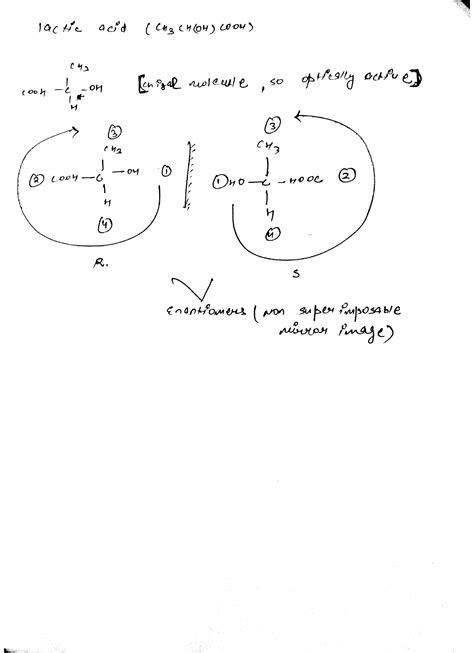 lactic acid (CH3 CH(OH) COOH)
CH3
COOH - C - OH [chiral molecule, so optically active]
*
H
③ ③
CH3 CH3
② COOH - C - OH ① ① HO - C - HOOC ②
H H
④ ④
R. S
Enantiomers (non superimposable
mirror image)